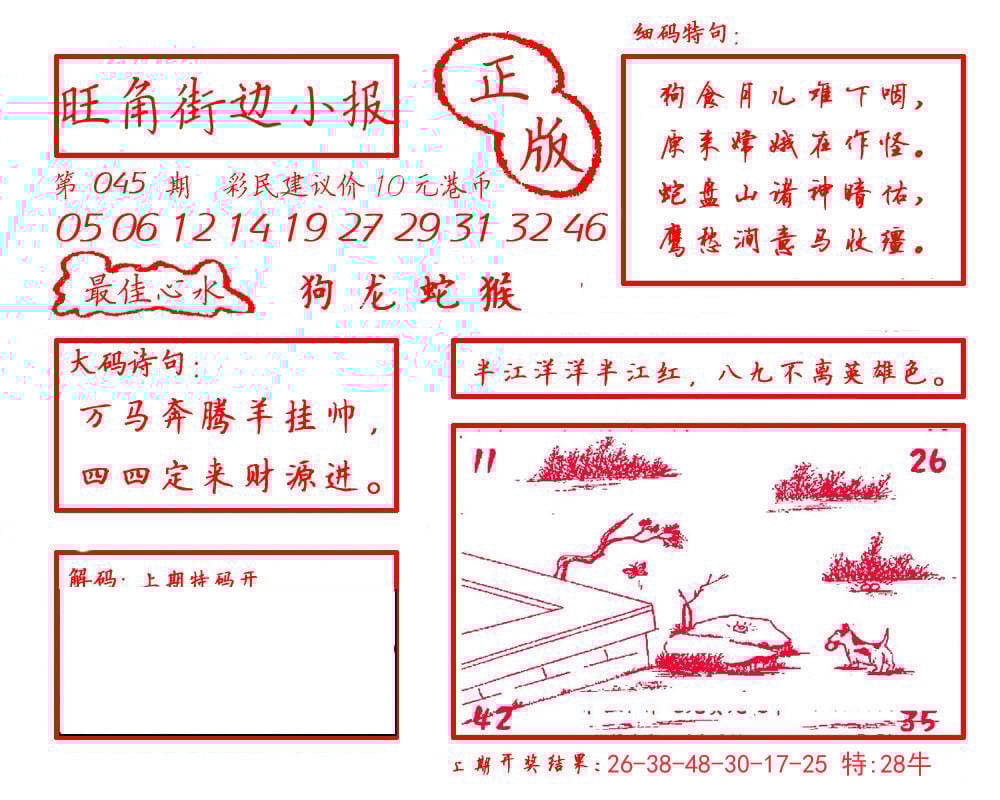 旺角街边小报
正版
第 045 期 彩民建议价 10 元港币
05 06 12 14 19 27 29 31 32 46
最佳心水 狗 龙 蛇 猴
细码特句:
狗食月儿难下咽,
原来嫦娥在作怪。
蛇盘山诸神暗佑,
鹰愁涧意马收缰。
大码诗句:
万马奔腾羊挂帅,
四四定来财源进。
半江洋洋半江红, 八九不离英雄色。
11 26
42 35
解码· 上期特码开
上期开奖结果: 26-38-48-30-17-25 特:28牛